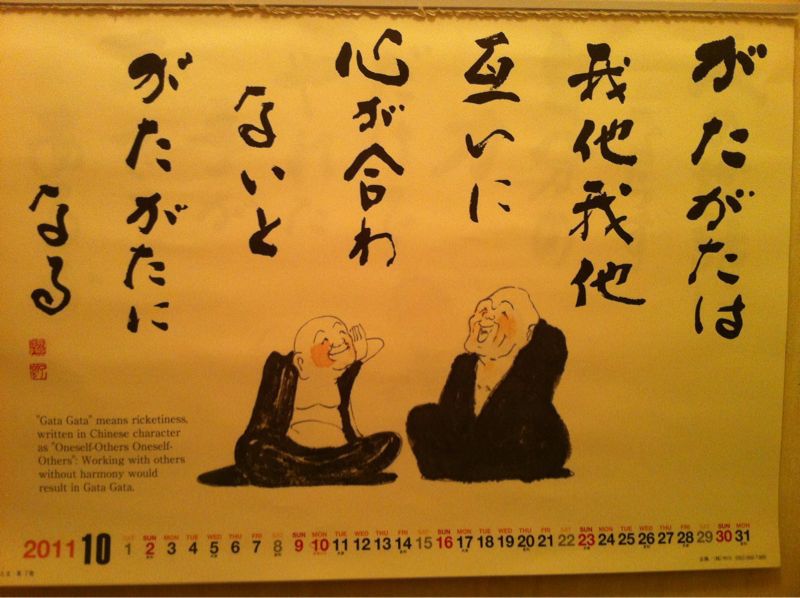 がたがたは
我他我他
互いに
心が合わ
ないと
がたがたに
なる
"Gata Gata" means ricketiness,
written in Chinese character
as "Oneself-Others Oneself-
Others": Working with others
without harmony would
result in Gata Gata.
2011 10
SAT SUN MON TUE WED THU FRI SAT SUN MON TUE WED THU FRI SAT SUN MON TUE WED THU FRI SAT SUN MON TUE WED THU FRI SAT SUN MON
1 2 3 4 5 6 7 8 9 10 11 12 13 14 15 16 17 18 19 20 21 22 23 24 25 26 27 28 29 30 31